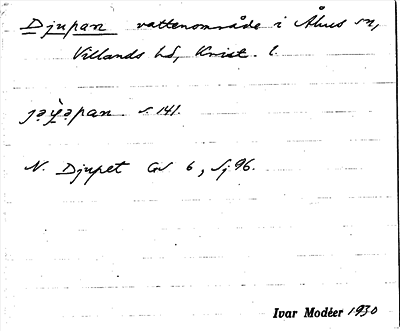 Djupan vattenområde i Åhus sn,
Villands hd, Krist. l.
s. 141.
N. Djupet GS 6, Sj 96.
Ivar Modéer 1930